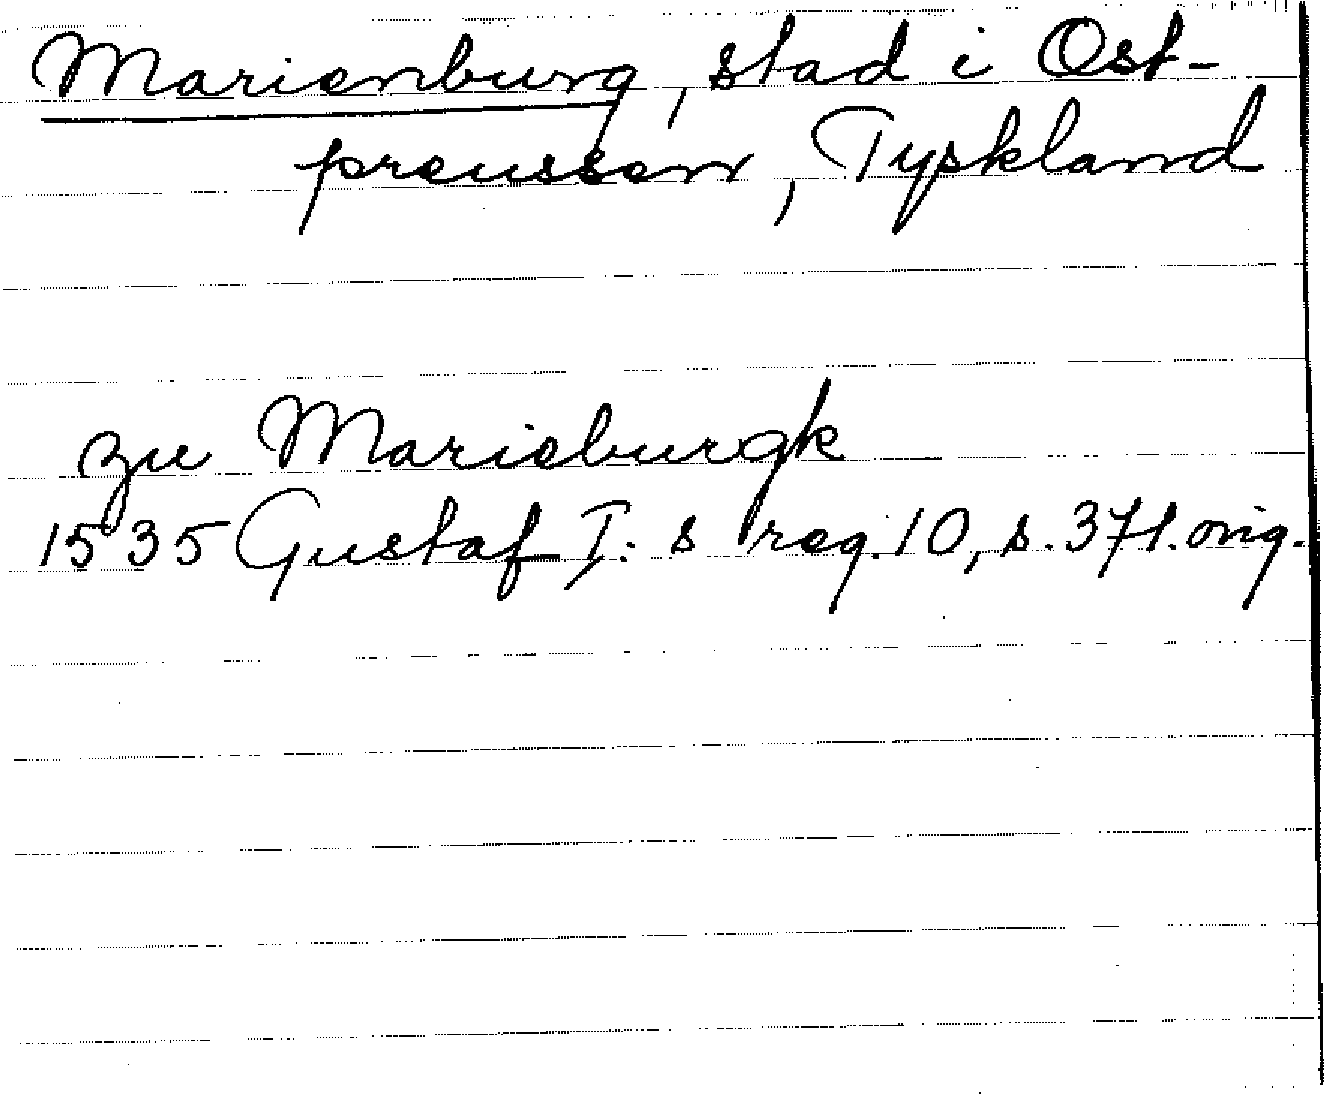 Marienburg, stad i Ost-
preussen, Tyskland
zu Marieburgk
1535 Gustaf I:s reg. 10, s. 371. orig.